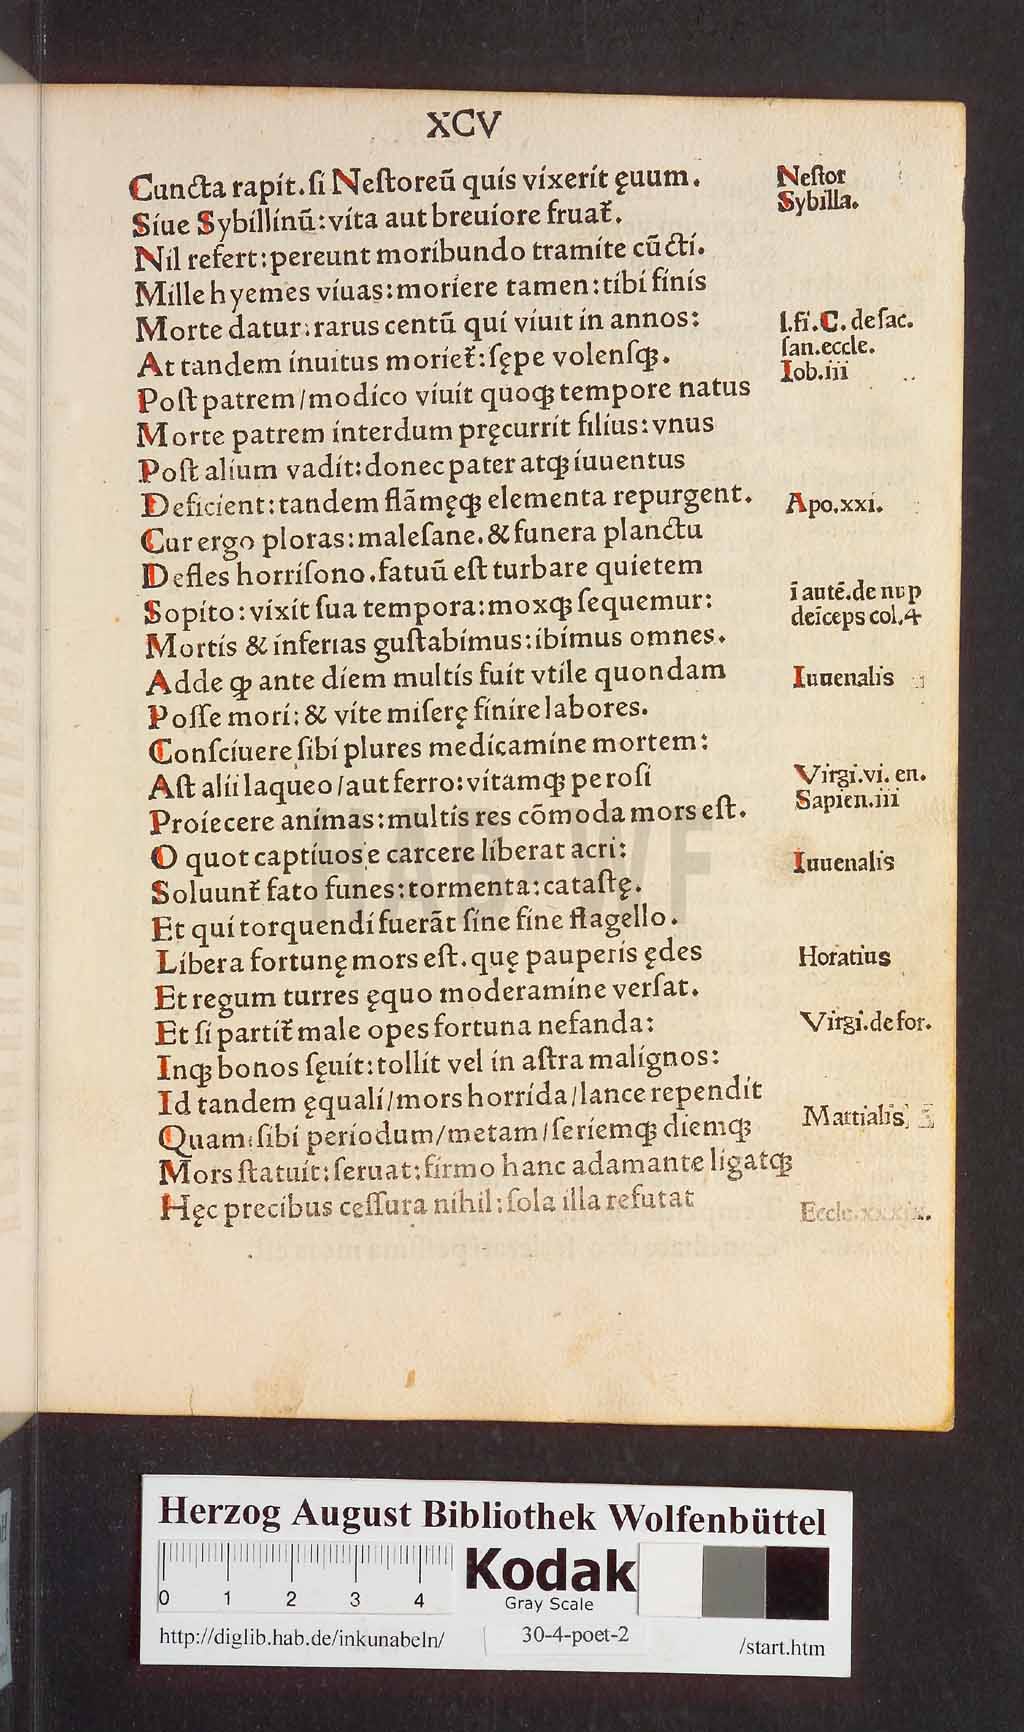 XCV
Cuncta rapit. ſi Neſtoreū quis vixerit ęuum.
Siue Sybillinū: vita aut breuiore fruat᷑.
Nil refert: pereunt moribundo tramite cūcti.
Mille hyemes viuas: moriere tamen: tibi finis
Morte datur: rarus centū qui viuit in annos:
At tandem inuitus moriet᷑: ſępe volenſqꝫ.
Poſt patrem/modico viuit quoqꝫ tempore natus
Morte patrem interdum pręcurrit filius: vnus
Poſt alium vadit: donec pater atqꝫ iuuentus
Deficient: tandem flāmęqꝫ elementa repurgent.
Cur ergo ploras: maleſane. & funera planctu
Defles horriſono. fatuū eſt turbare quietem
Sopito: vixit ſua tempora: moxqꝫ ſequemur:
Mortis & inferias guſtabimus: ibimus omnes.
Adde qꝫ ante diem multis fuit vtile quondam
Poſſe mori: & vite miſerę finire labores.
Conſciuere ſibi plures medicamine mortem:
Aſt alii laqueo/aut ferro: vitamqꝫ peroſi
Proiecere animas: multis res cōmoda mors eſt.
O quot captiuos e carcere liberat acri:
Soluunt᷑ fato funes: tormenta: cataſtę.
Et qui torquendi fuerāt ſine fine flagello.
Libera fortunę mors eſt. quę pauperis ędes
Et regum turres ęquo moderamine verſat.
Et ſi partit᷑ male opes fortuna nefanda:
Inqꝫ bonos ſęuit: tollit vel in aſtra malignos:
Id tandem ęquali/mors horrida/lance rependit
Quam: ſibi periodum/metam/ſeriemqꝫ diemqꝫ
Mors ſtatuit: ſeruat: firmo hanc adamante ligatqꝫ
Hęc precibus ceſſura nihil: ſola illa refutat
Neſtor
Sybilla.
l.fi.C. de ſac.
ſan.eccle.
Iob.iii
Apo.xxi.
ī autē.de nup
deīceps col.4
Iuuenalis
Virgi.vi. en.
Sapien.iii
Iuuenalis
Horatius
Virgi.de for.
Martialis
Eccle.xxxix.
HAB WF
Herzog August Bibliothek Wolfenbüttel
0 1 2 3 4
Kodak
Gray Scale
http://diglib.hab.de/inkunabeln/
30-4-poet-2
/start.htm